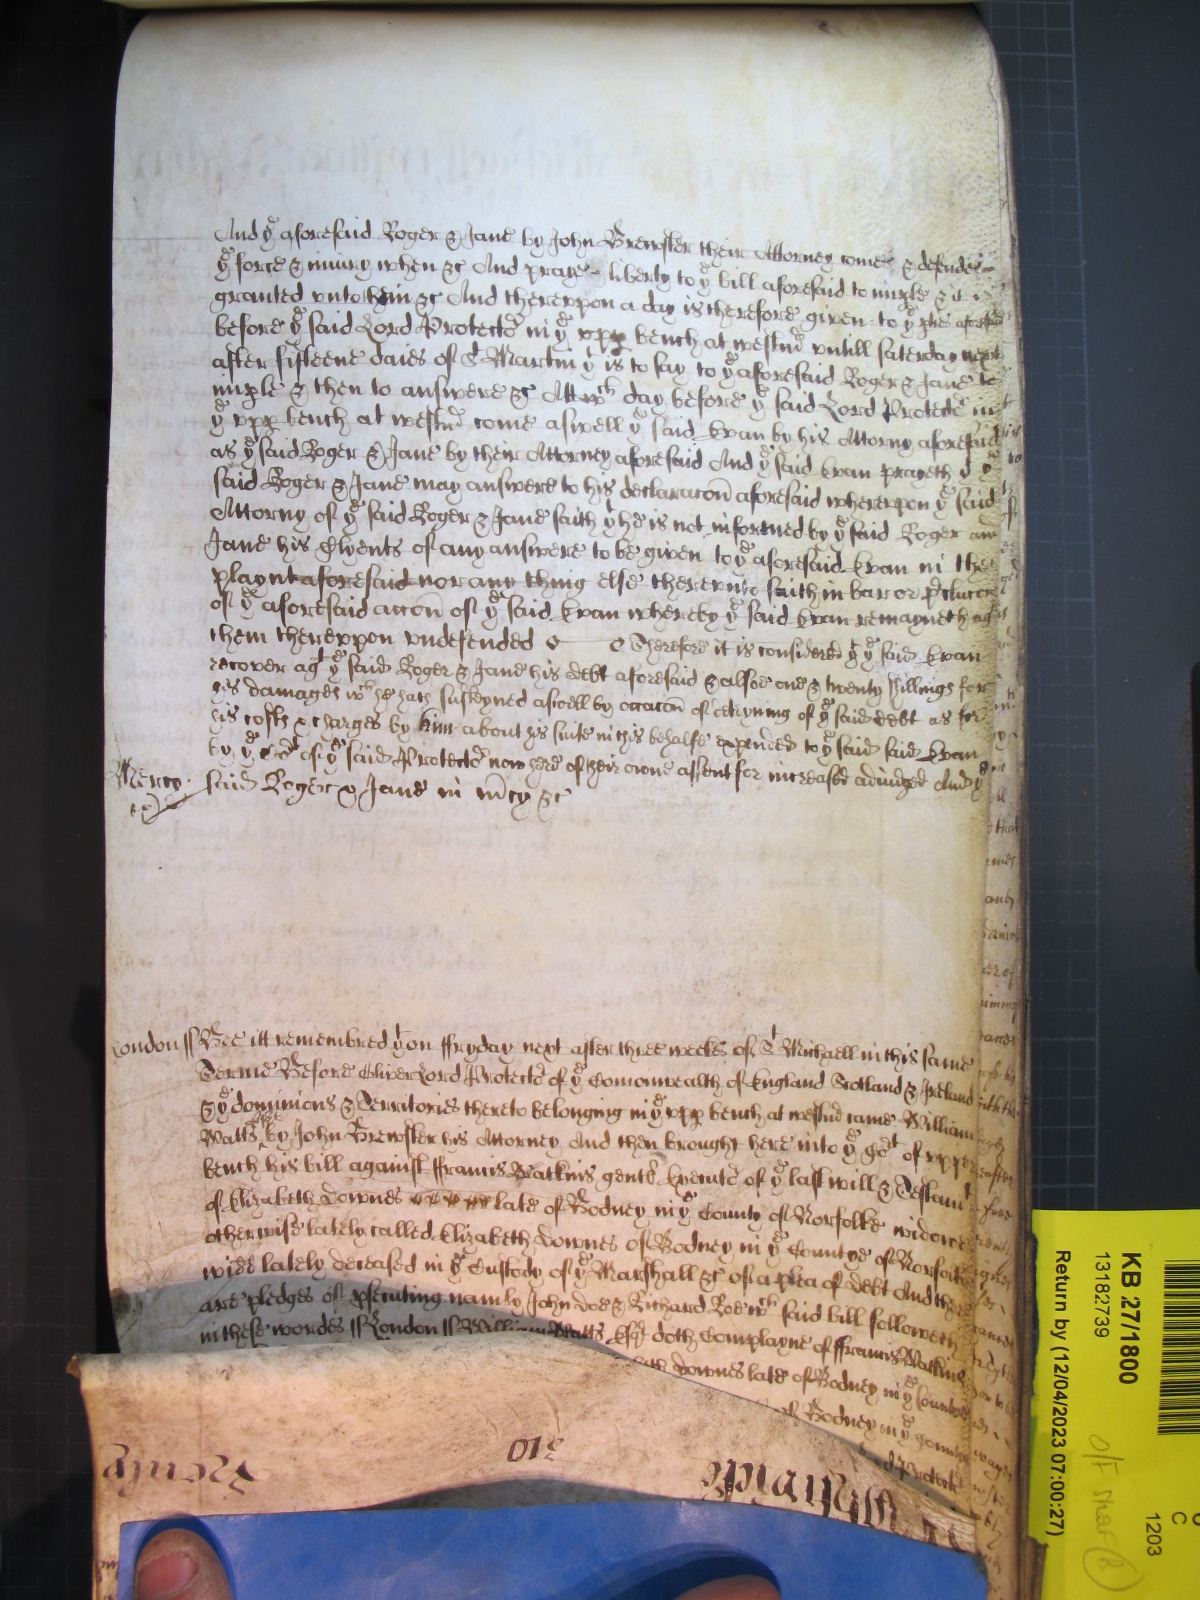 And ye aforesaid Roger & Jane by John Brewster their Attorney come & defende
ye force & iniury when &c And praye liberty to ye bill aforesaid to imple & it is
granted vnto them &c And therevpon a day is therefore given to ye ptie aforesaid
before ye said Lord Protectr in ye vpp bench at westmr vntill Saterday next
after fifteene daies of St Martin yt is to say to ye aforesaid Roger & Jane to
imple & then to answere &c Att wch day before ye said Lord Protectr in
ye vpp bench at westmr come aswell ye said Evan by his Attorny aforesaid
as ye said Roger & Jane by their Attorney aforesaid And ye said Evan prayeth yt ye
said Roger & Jane may answere to his declaracon aforesaid wherevpon ye said
Attorny of ye said Roger & Jane saith yt he is not informed by ye said Roger and
Jane his Clyents of any answere to be given to ye aforesaid Evan in the
playnt aforesaid nor any thing else therevnto saith in bar or pclucon
of ye aforesaid accon of ye said Evan whereby ye said Evan remayneth agt
them therevpon vndefended Therefore it is considered yt ye said Evan
recover agt ye said Roger & Jane his debt aforesaid & alsoe one & twenty shillings for
his damages wch he hath susteyned aswell by occacon of deteyning of ye said debt as for
his costs & charges by him about his suite in this behalfe expended to ye said said Evan
by ye Crt of ye said Protectr now here of their owne assent for increase adiudged And ye
Mercy said Roger & Jane in mcy &c
London ss Bee itt remembred yt on ffryday next after three weekes of St Michaell in this same
Terme Before Oliver Lord Protectr of ye Comonwealth of England Scotland & Ireland
& ye dominions & Territories thereto belonging in ye vpp bench at westmr came William
Watts by John Brewster his Attorney And then brought here into ye Cort of vpper
bench his bill against ffrancis Watkins gent Executr of ye last will & Testamt
of Elizabeth Downes late of Bodney in ye County of Norfolke widowe
otherwise lately called Elizabeth Downes of Bodney in ye Countye of Norfolke
wid lately deceased in ye Custody of ye Marshall &c of a plea of debt And there
are pledges of psecuting namly John doe & Richard Roe wch said bill followeth
in these wordes ss London ss William Watts Esqr doth Complayne of ffrancis Watkins
Downes late of Bodney in ye County
of Bodney in ye County
310
KB 27/1800
13182739
Return by (12/04/2023 07:00:27)
1203
C